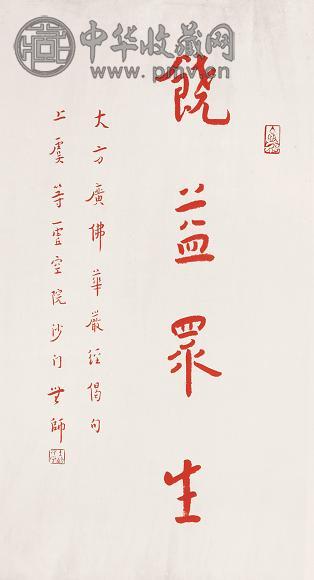 中华收藏网
www.pmv.cn
饒益眾生
大方廣佛華嚴經偈句
上虞等虛空院沙门世師